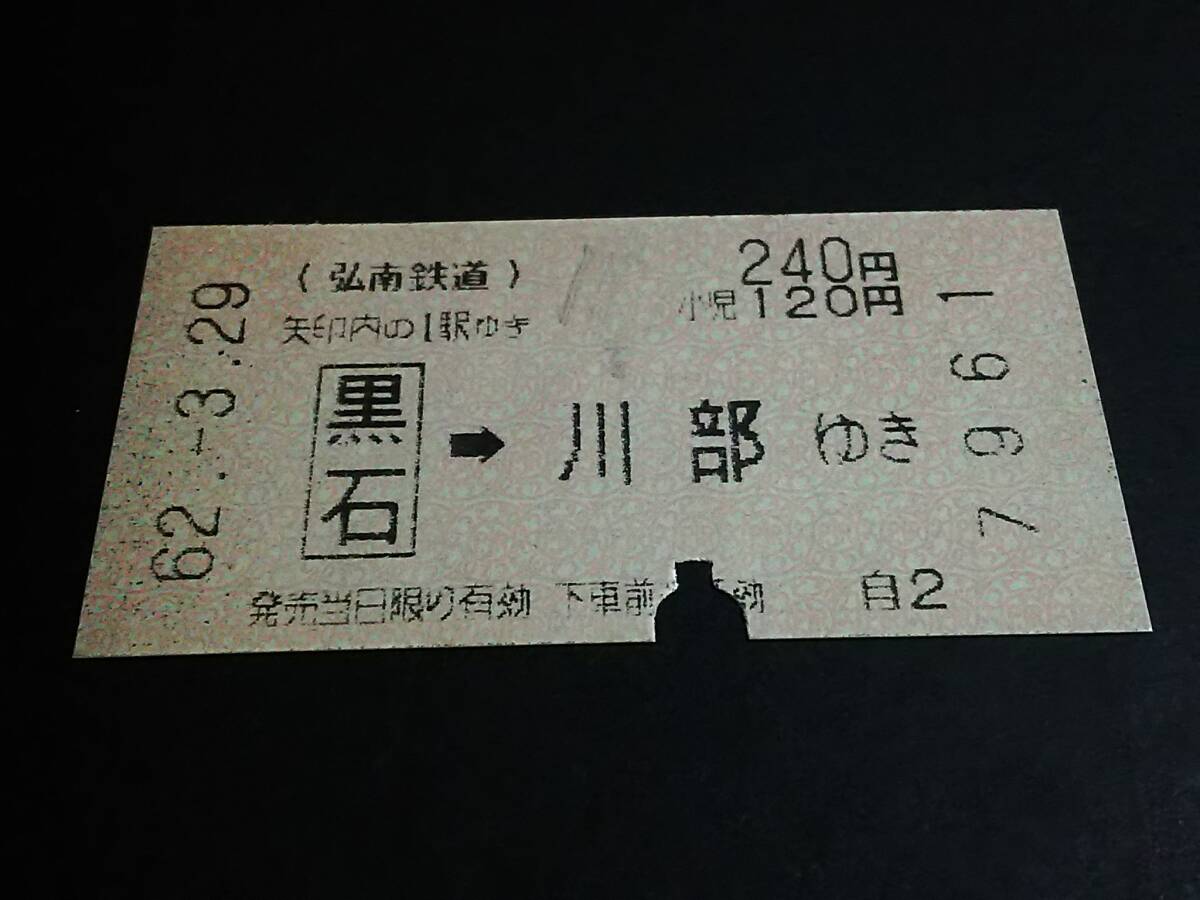 (弘南鉄道)
240円
小児120円
矢印内の1駅ゆき
黒石 ➡ 川部ゆき
62.-3.29
7961
発売当日限り有効 下車前 効
自2